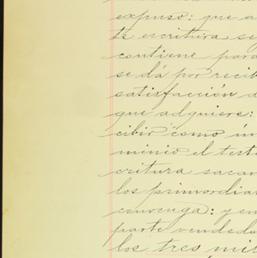 expuso: que a
te escritura se
contiene para
se dá por recib
satisfacción d
que adquiere:
cibir como in
minio el testi
critura sacan
los primordia
convenga: y en
parte vendedo
los tres mil